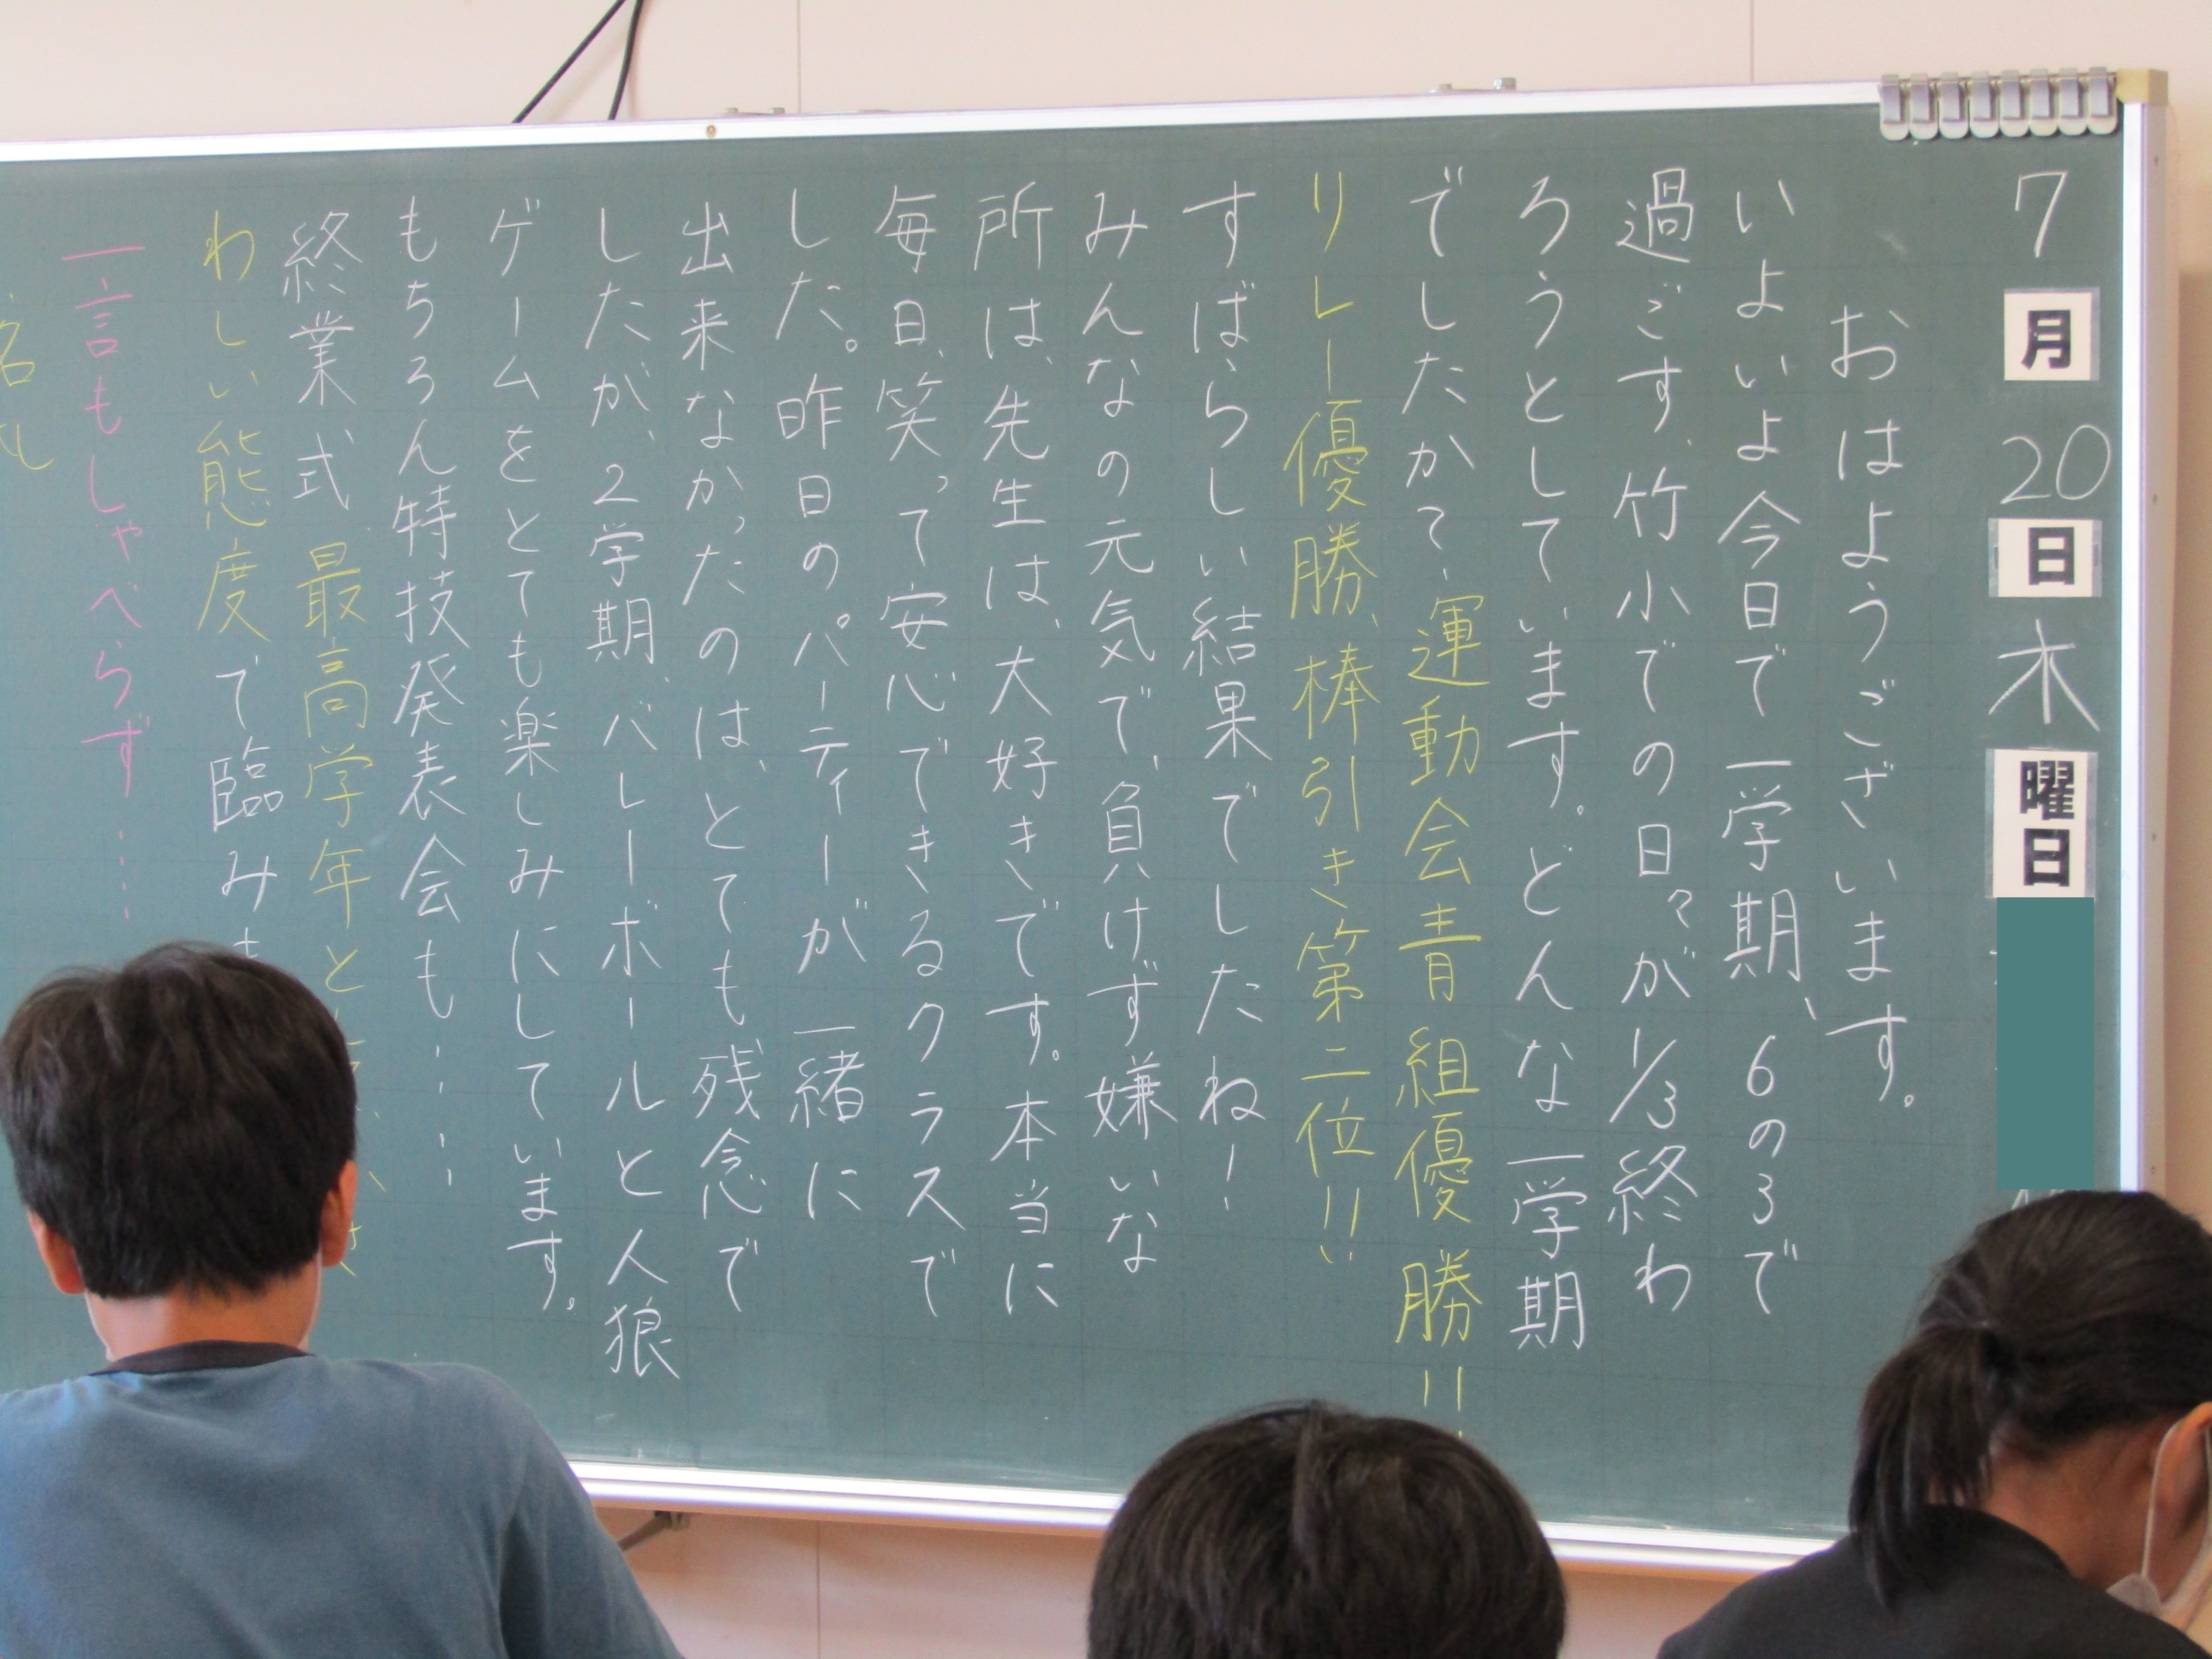 7月20日木曜日
おはようございます。
いよいよ今日で一学期、6の3で
過ごす、竹小での日々が1/3終わ
ろうとしています。どんな一学期
でしたかて、運動会青組優勝!!
リレー優勝、棒引き第二位!!
すばらしい結果でしたね!
みんなの元気で、負けず嫌いな
所は、先生は、大好きです。本当に
毎日、笑って安心できるクラスで
した。昨日のパーティーが一緒に
出来なかったのは、とても残念で
したが、2学期、バレーボールと人狼
ゲームをとても楽しみにしています。
もちろん特技発表会も……
終業式、最高学年と
わしい態度で臨みま
一言もしゃべらず……